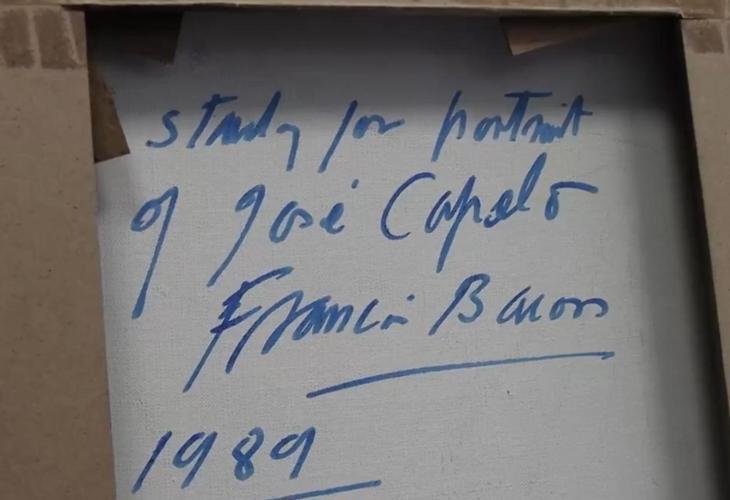 study for portrait
of José Capelo
Francis Bacon
1989